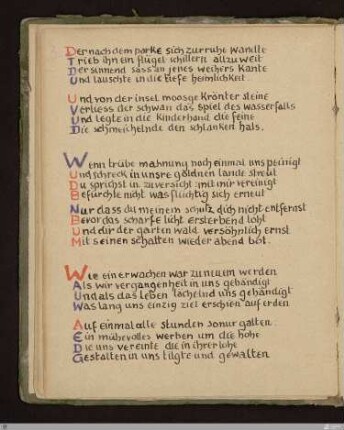 Der nach dem parke sich zur ruhe wandte
Trieb ihn ein flügelschillern allzuweit
Der sinnend sass an jenes weihers kante
Und lauschte in die tiefe heimlichkeit..

Und von der insel moosge krönter steine
Verliess der schwan das spiel des wasserfalls
Und legte in die kinderhand die feine
Die schmeichelnde den schlanken hals.

Wenn trübe mahnung noch einmal uns peinigt
Und schreck in unsre goldnen lande streut
Du sprichst in zuversicht mit mir vereinigt
Befürchte nicht was flüchtig sich erneut

Nur dass du meinem schutz dich nicht entfernst
Bevor das scharfe licht ersterbend loht
Und dir der garten wald versöhnlich ernst
Mit seinen schatten wieder abend bot.

Wie ein erwachen war zu neuem werden
Als wir vergangenheit in uns gebändigt
Und als das leben lächelnd uns gehändigt
Was lang uns einzig ziel erschien auf erden

Auf einmal alle stunden so nur galten:
Ein mühevolles werben um die hohe
Die uns vereinte die in ihrer lohe
Gestalten in uns tilgte und gewalten